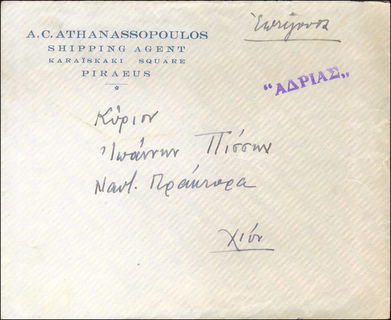 A.C. ATHANASSOPOULOS
SHIPPING AGENT
KARAÏSKAKI SQUARE
PIRAEUS
Ἐπείγουσα
"ΑΔΡΙΑΣ"
Κύριον
Ἰωάννην Πίσσην
Ναυτ. Πράκτορα
Χίον